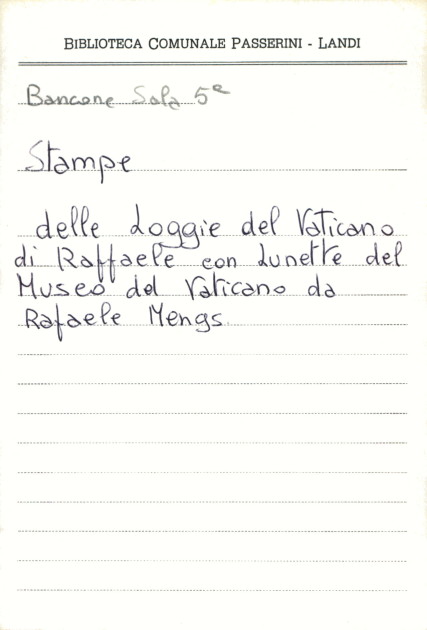 BIBLIOTECA COMUNALE PASSERINI - LANDI
Bancone Sala 5ª
Stampe
delle Loggie del Vaticano
di Raffaele con Lunette del
Museo del Vaticano da
Rafaele Mengs.